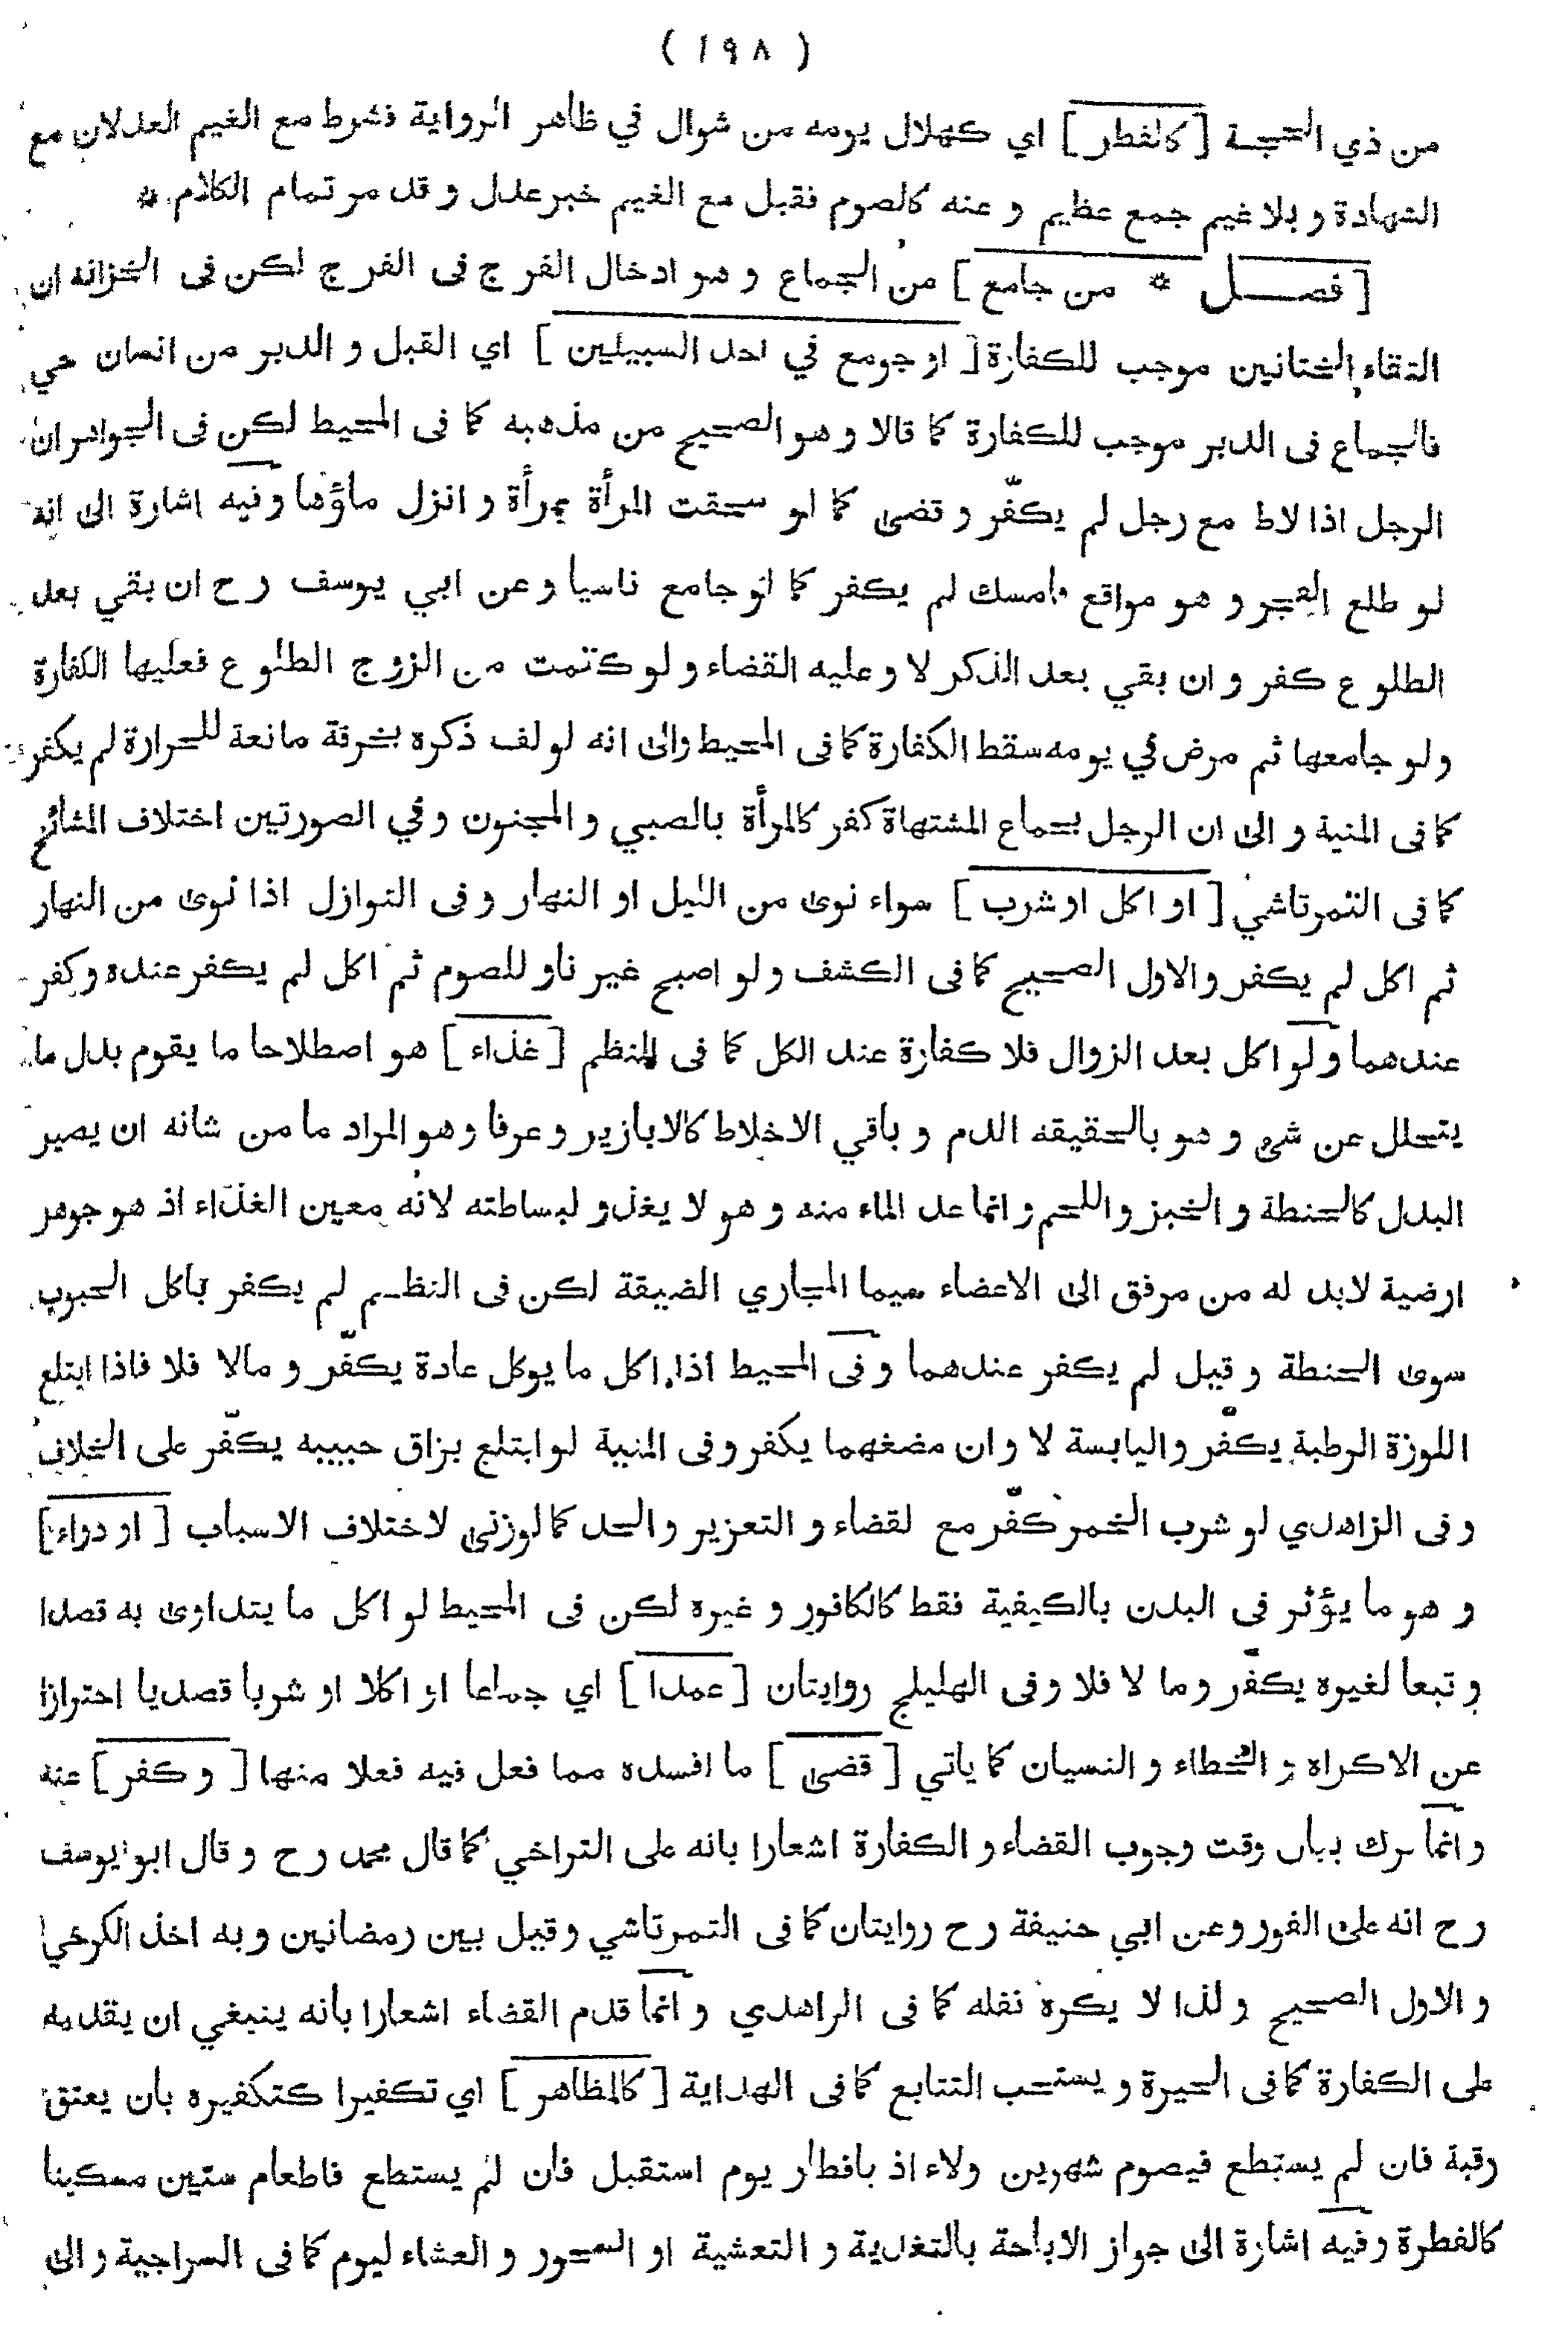 ( ١٩٨ )
من ذي الحجة [ كالفطر ] اي كهلال يومه من شوال في ظاهر الرواية فشرط مع الغيم العدلان مع
الشهادة و بلا غيم جمع عظيم و عنه كالصوم فقبل مع الغيم خبر عدل و قد مر تمام الكلام *
[ فصل * من جامع ] من الجماع و هو ادخال الفرج فى الفرج لكن فى الخزانه ان
التقاء الختانين موجب للكفارة [ او جومع في احد السبيلين ] اي القبل و الدبر من انسان حي
فالجماع فى الدبر موجب للكفارة كما قالا و هو الصحيح من مذهبه كما فى المحيط لكن فى الجواهر ان
الرجل اذا لاط مع رجل لم يكفّر و قضى كما لو سحقت المرأة بمرأة و انزل ماؤها و فيه اشارة الى انه
لو طلع الفجر و هو مواقع فامسك لم يكفر كما لو جامع ناسيا و عن ابي يوسف رح ان بقي بعد
الطلوع كفر و ان بقي بعد الذكر لا و عليه القضاء و لو كتمت من الزوج الطلوع فعليها الكفارة
ولو جامعها ثم مرض في يومه سقط الكفارة كما فى المحيط والى انه لو لف ذكره بخرقة مانعة للحرارة لم يكفر
كما فى المنية و الى ان الرجل بجماع المشتهاة كفر كالمرأة بالصبي و المجنون و في الصورتين اختلاف المشائخ
كما فى التمرتاشي [ او اكل او شرب ] سواء نوى من الليل او النهار و فى النوازل اذا نوى من النهار
ثم اكل لم يكفر و الاول الصحيح كما فى الكشف و لو اصبح غير ناو للصوم ثم اكل لم يكفر عنده و كفر
عندهما و لو اكل بعد الزوال فلا كفارة عند الكل كما فى المنظم [ غذاء ] هو اصطلاحا ما يقوم بدل ما
يتحلل عن شئ و هو بالحقيقه الدم و باقي الاخلاط كالابازير و عرفا و هو المراد ما من شانه ان يصير
البدل كالحنطة و الخبز و اللحم و انما عد الماء منه و هو لا يغذو لبساطته لانه معين الغذاء اذ هو جوهر
ارضية لابد له من مرفق الى الاعضاء سيما المجاري الضيقة لكن فى النظم لم يكفر باكل الحبوب
سوى الحنطة و قيل لم يكفر عندهما و فى المحيط اذا اكل ما يوكل عادة يكفّر و مالا فلا فاذا ابتلع
اللوزة الرطبة يكفّر و اليابسة لا و ان مضغهما يكفر و فى المنية لو ابتلع بزاق حبيبه يكفّر على الخلاف
و فى الزاهدي لو شرب الخمر كفّر مع لقضاء و التعزير و الحد كما لوزنى لاختلاف الاسباب [ او دواء ]
و هو ما يؤثر فى البدن بالكيفية فقط كالكافور و غيره لكن فى المحيط لو اكل ما يتداوى به قصدا
و تبعا لغيره يكفّر و ما لا فلا و فى الهليلج روايتان [ عمدا ] اي جماعا او اكلا او شربا قصديا احترازا
عن الاكراه و الخطاء و النسيان كما يأتي [ قضى ] ما افسده مما فعل فيه فعلا منها [ و كفر ] عنه
و انما ترك بيان وقت وجوب القضاء و الكفارة اشعارا بانه على التراخي كما قال محمد رح و قال ابو يوسف
رح انه على الفور و عن ابي حنيفة رح روايتان كما فى التمرتاشي و قيل بين رمضانين و به اخذ الكرخي
و الاول الصحيح و لذا لا يكره نفله كما فى الزاهدي و انما قدم القضاء اشعارا بأنه ينبغي ان يقدمه
على الكفارة كما فى الحيرة و يستحب التتابع كما فى الهداية [ كالمظاهر ] اي تكفيرا كتكفيره بان يعتق
رقبة فان لم يستطع فيصوم شهرين ولاء اذ بافطار يوم استقبل فان لم يستطع فاطعام ستين مسكينا
كالفطرة و فيه اشارة الى جواز الاباحة بالتغدية و التعشية او السحور و العشاء ليوم كما فى السراجية و الى